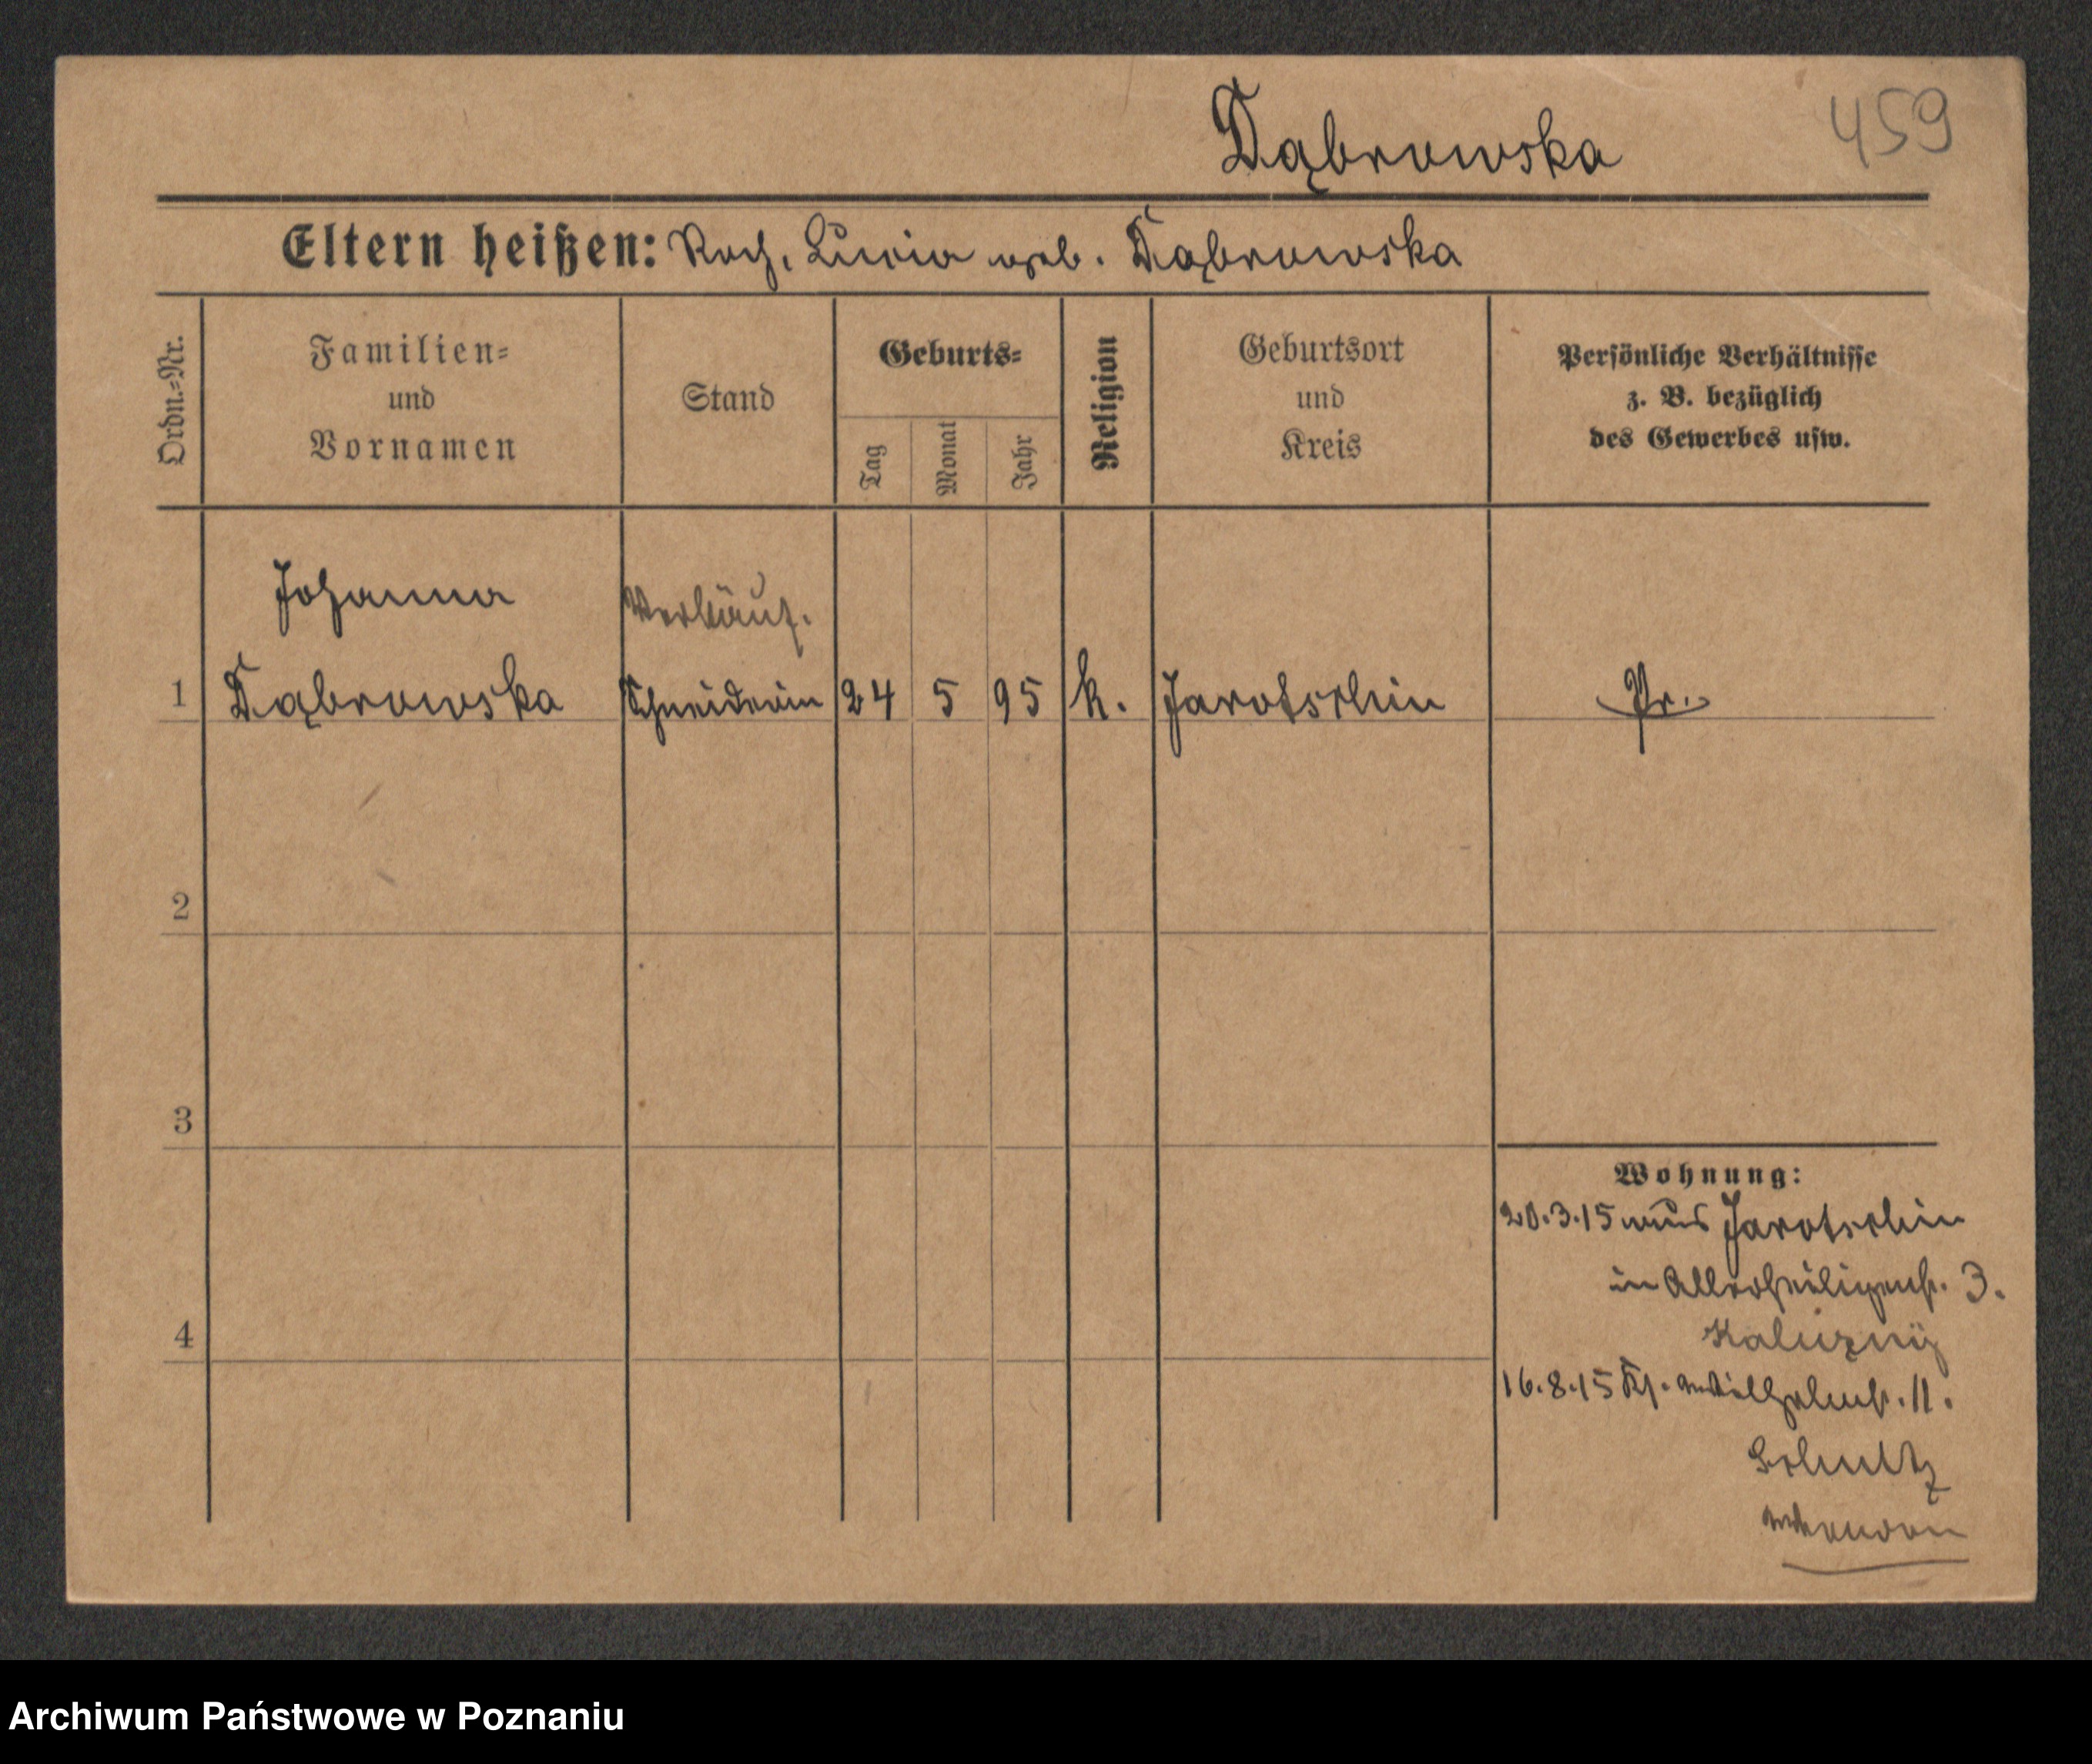 Dąbrowska
459
Eltern heißen: Roch, Lucia geb. Dąbrowska
Ordn.-Nr.
Familien-
und
Vornamen
Stand
Geburts-
Tag
Monat
Jahr
Religion
Geburtsort
und
Kreis
Persönliche Verhältnisse
z. B. bezüglich
des Gewerbes usw.
Johanna
Verkäuf.
1 Dąbrowska Schneiderin 24 5 95 k. Jarotschin Pr.
2
3
4
Wohnung:
20.3.15 aus Jarotschin
in Allerheiligenstr. 3.
Kaluzny
16.8.15 Wilhelmstr. 11.
Schultz
Archiwum Państwowe w Poznaniu